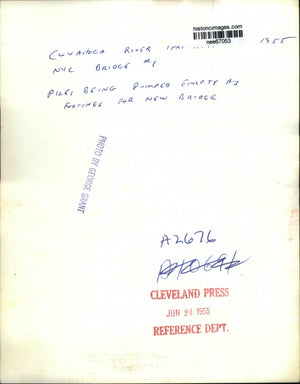 historicimages.com
nee67053
CUYAHOGA RIVER 1955
NYC BRIDGE #1
PILES BEING PUMPED EMPTY AS
FOOTINGS FOR NEW BRIDGE
PHOTO BY GEORGE GRANT
A2676
CLEVELAND PRESS
JUN 24 1955
REFERENCE DEPT.